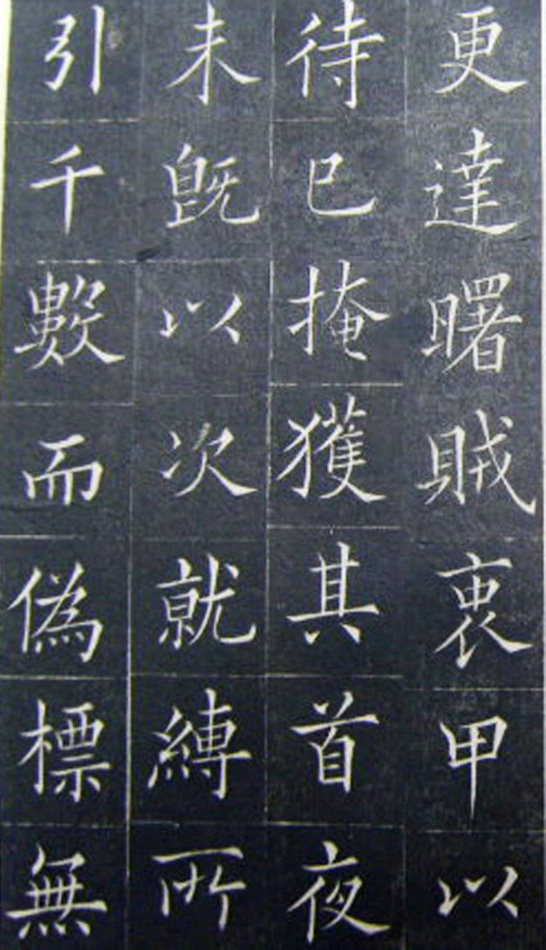 更達曙賊衷甲以
待已掩獲其首夜
未既以次就縛所
引千數而偽標無